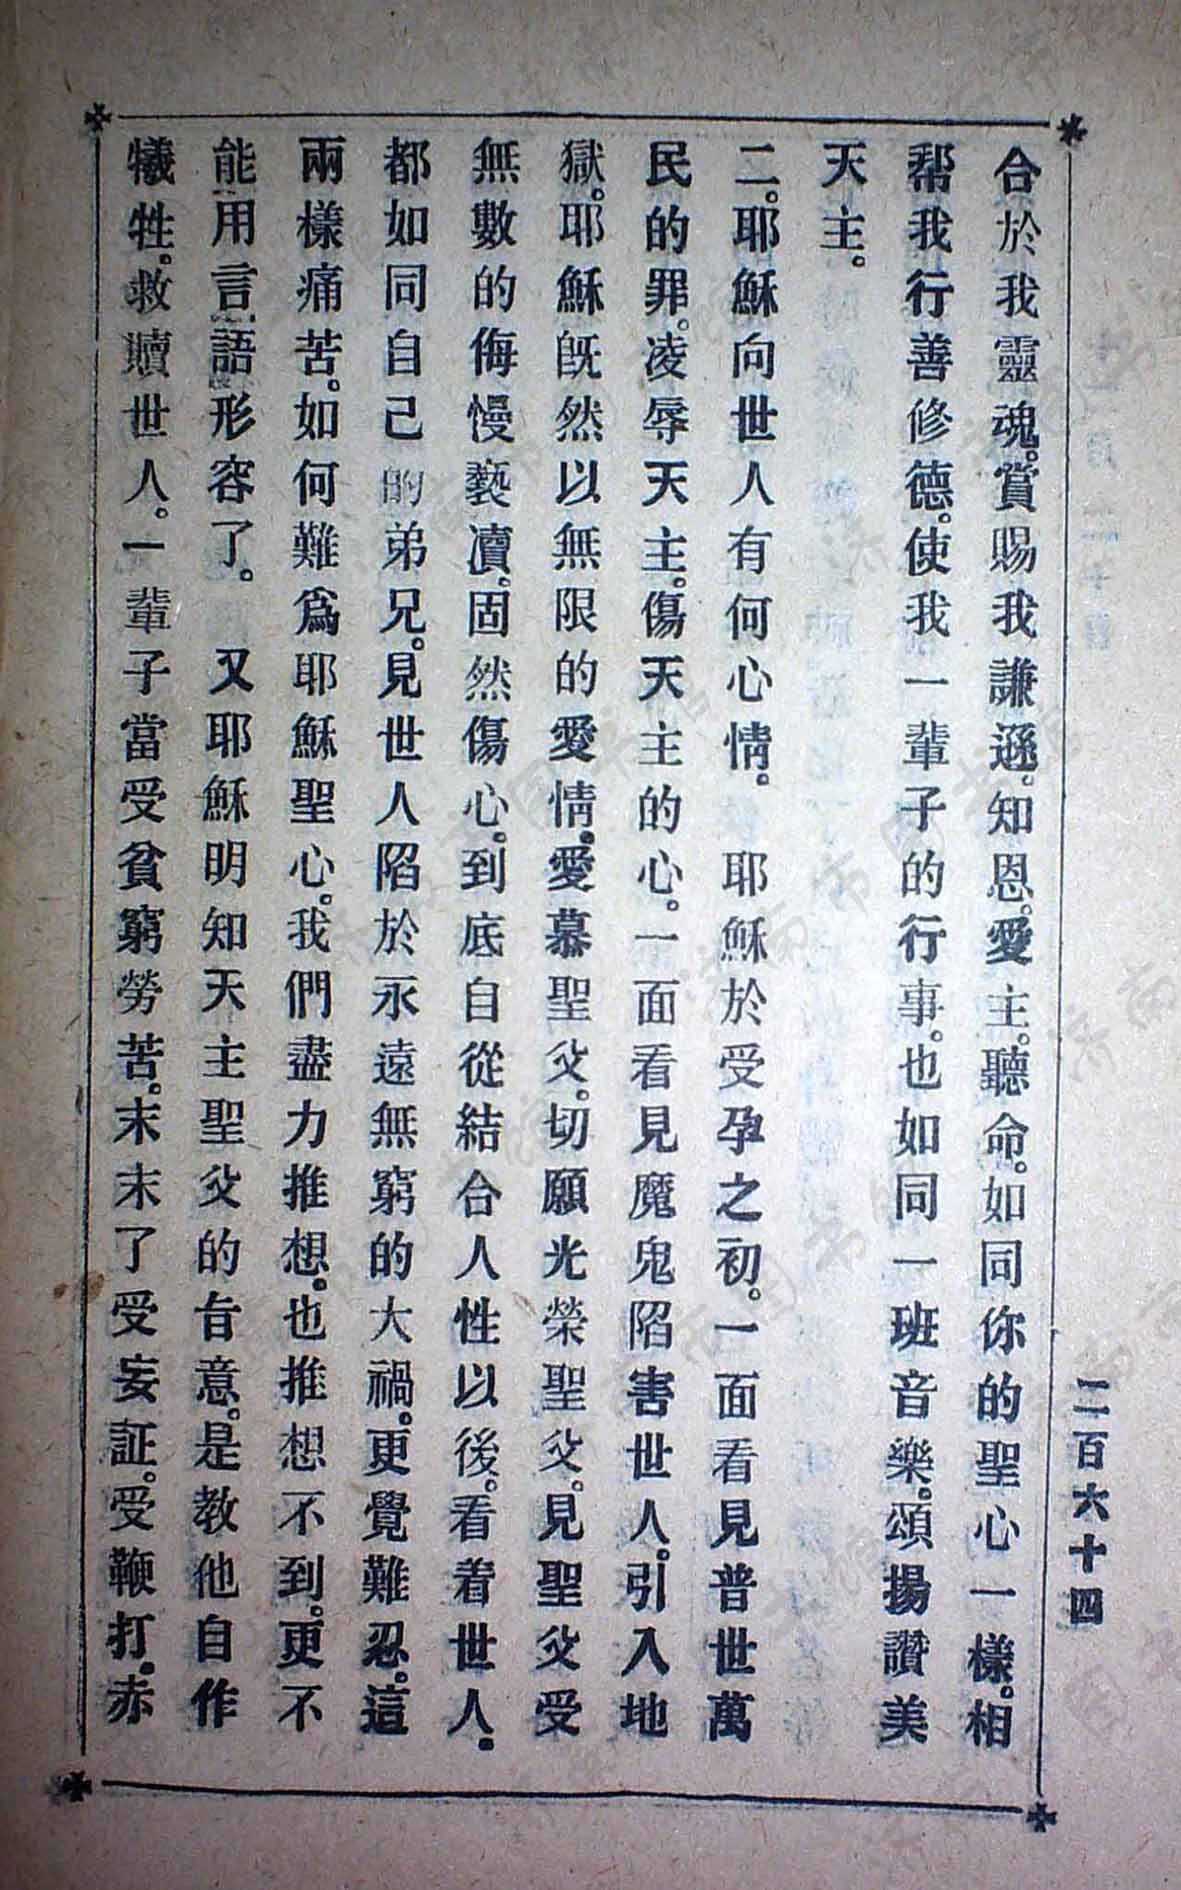 合於我靈魂。賞賜我謙遜。知恩。愛主。聽命。如同你的聖心一樣。相
幇我行善修德。使我一輩子的行事。也如同一班音樂。頌揚讚美
天主。
二。耶穌向世人有何心情。　耶穌於受孕之初。一面看見普世萬
民的罪。凌辱天主。傷天主的心。一面看見魔鬼陷害世人。引入地
獄。耶穌旣然以無限的愛情。愛慕聖父。切願光榮聖父。見聖父受
無數的侮慢褻瀆。固然傷心。到底自從結合人性以後。看着世人。
都如同自己的弟兄。見世人陷於永遠無窮的大禍。更覺難忍。這
兩樣痛苦。如何難爲耶穌聖心。我們盡力推想。也推想不到。更不
能用言語形容了。　又耶穌明知天主聖父的旨意。是教他自作
犧牲。救贖世人。一輩子當受貧窮勞苦。末末了受妄証。受鞭打。赤
二百六十四